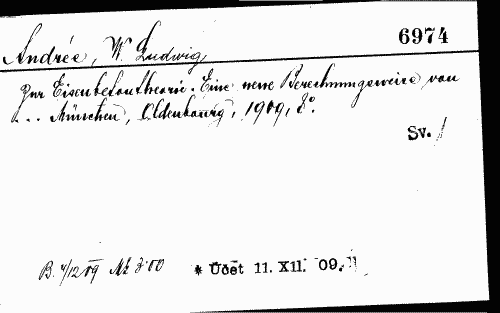 6974
Andrée, W. Ludwig
Zur Eisenbetontheorie. Eine neue Berechnungsweise von
... München, Oldenbourg, 1909, 8°.
Sv.
B. 4/12 09 Mk 3.00 * Udet 11. XII. 09.